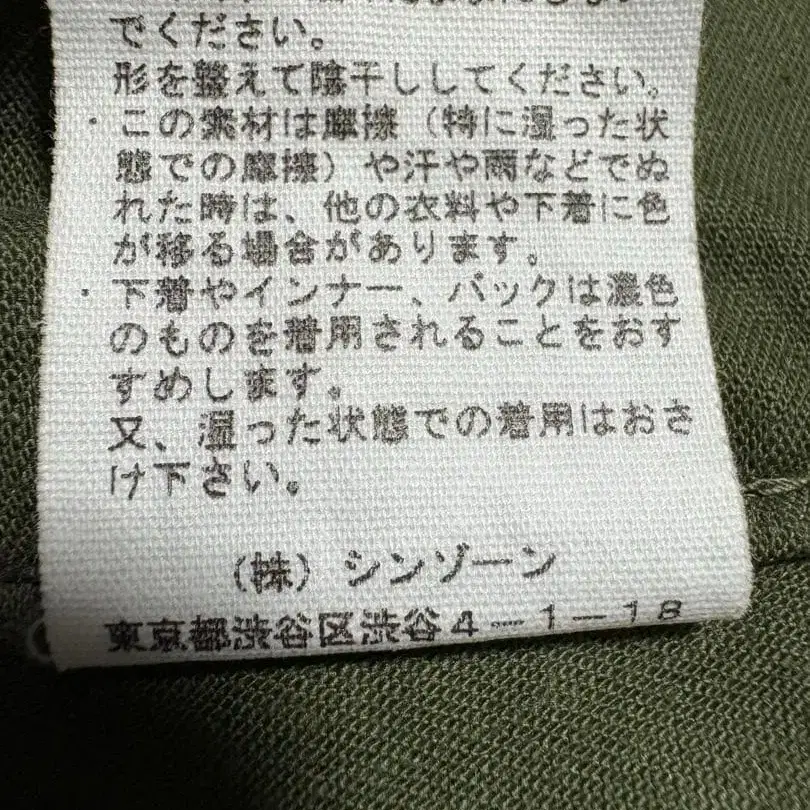 でください。
形を整えて陰干ししてください。
・この素材は摩擦（特に湿った状
態での摩擦）や汗や雨などでぬ
れた時は、他の衣料や下着に色
が移る場合があります。
・下着やインナー、バックは濃色
のものを着用されることをおす
すめします。
又、湿った状態での着用はおさ
け下さい。
（株）シンゾーン
東京都渋谷区渋谷4－1－18